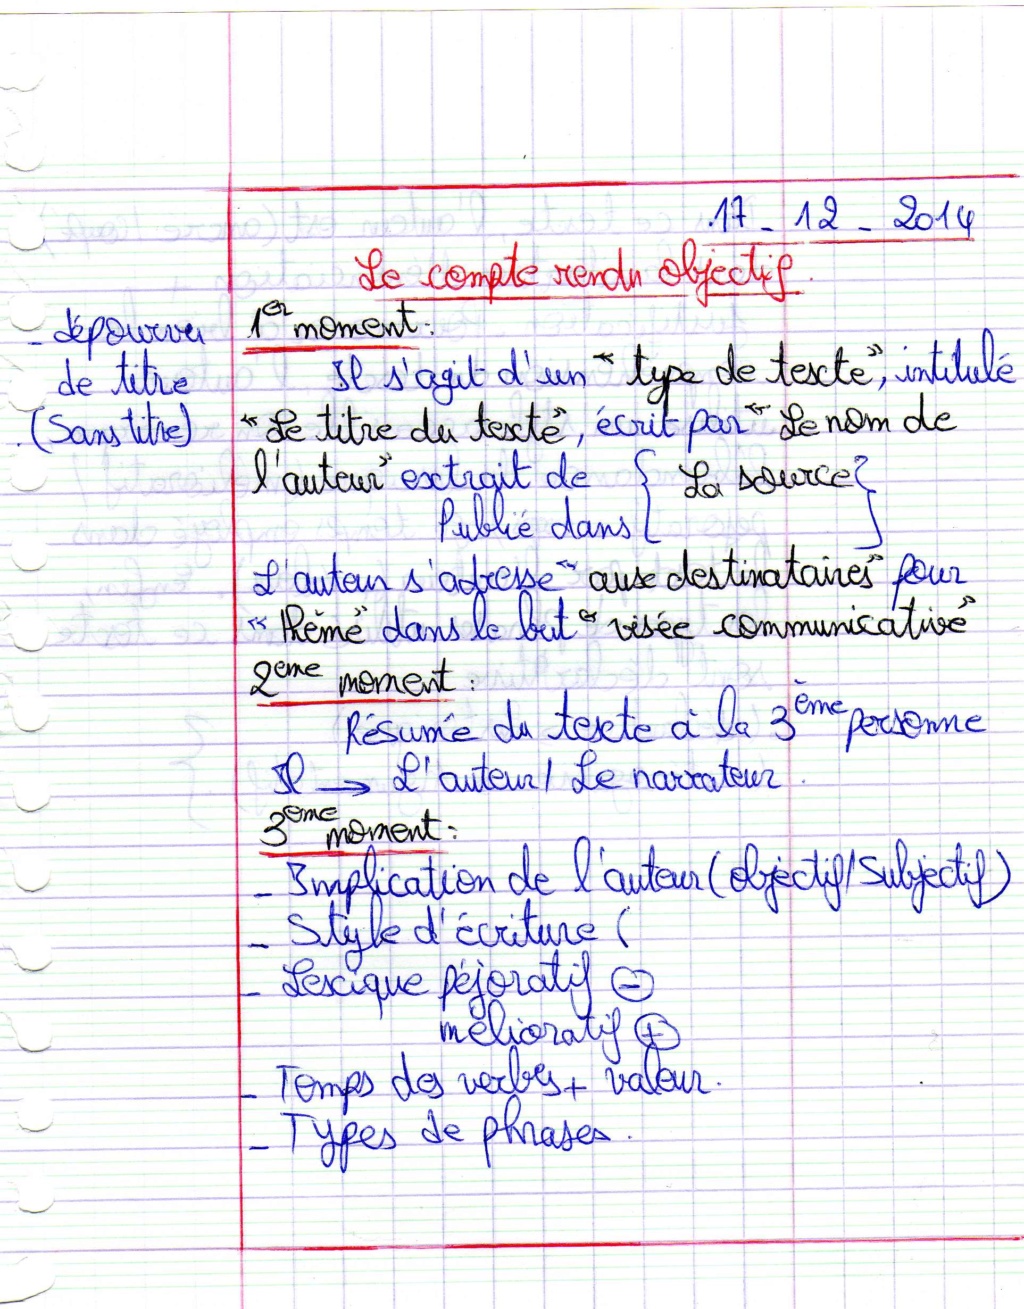 17 - 12 - 2014
Le compte rendu objectif.
- dépourvu
de titre
(Sans titre)
1er moment:
Il s'agit d'un "type de texte", intitulé
"Le titre du texte", écrit par "Le nom de
l'auteur" extrait de { La source }
Publié dans
L'auteur s'adresse "aux destinataires" pour
"thème" dans le but "visée communicative"
2ème moment:
Résumé du texte à la 3ème personne
Il → L'auteur / Le narrateur.
3ème moment:
- Implication de l'auteur (objectif / Subjectif)
- Style d'écriture (
- Lexique péjoratif ⊖
mélioratif ⊕
- Temps des verbes + valeur.
- Types de phrases.